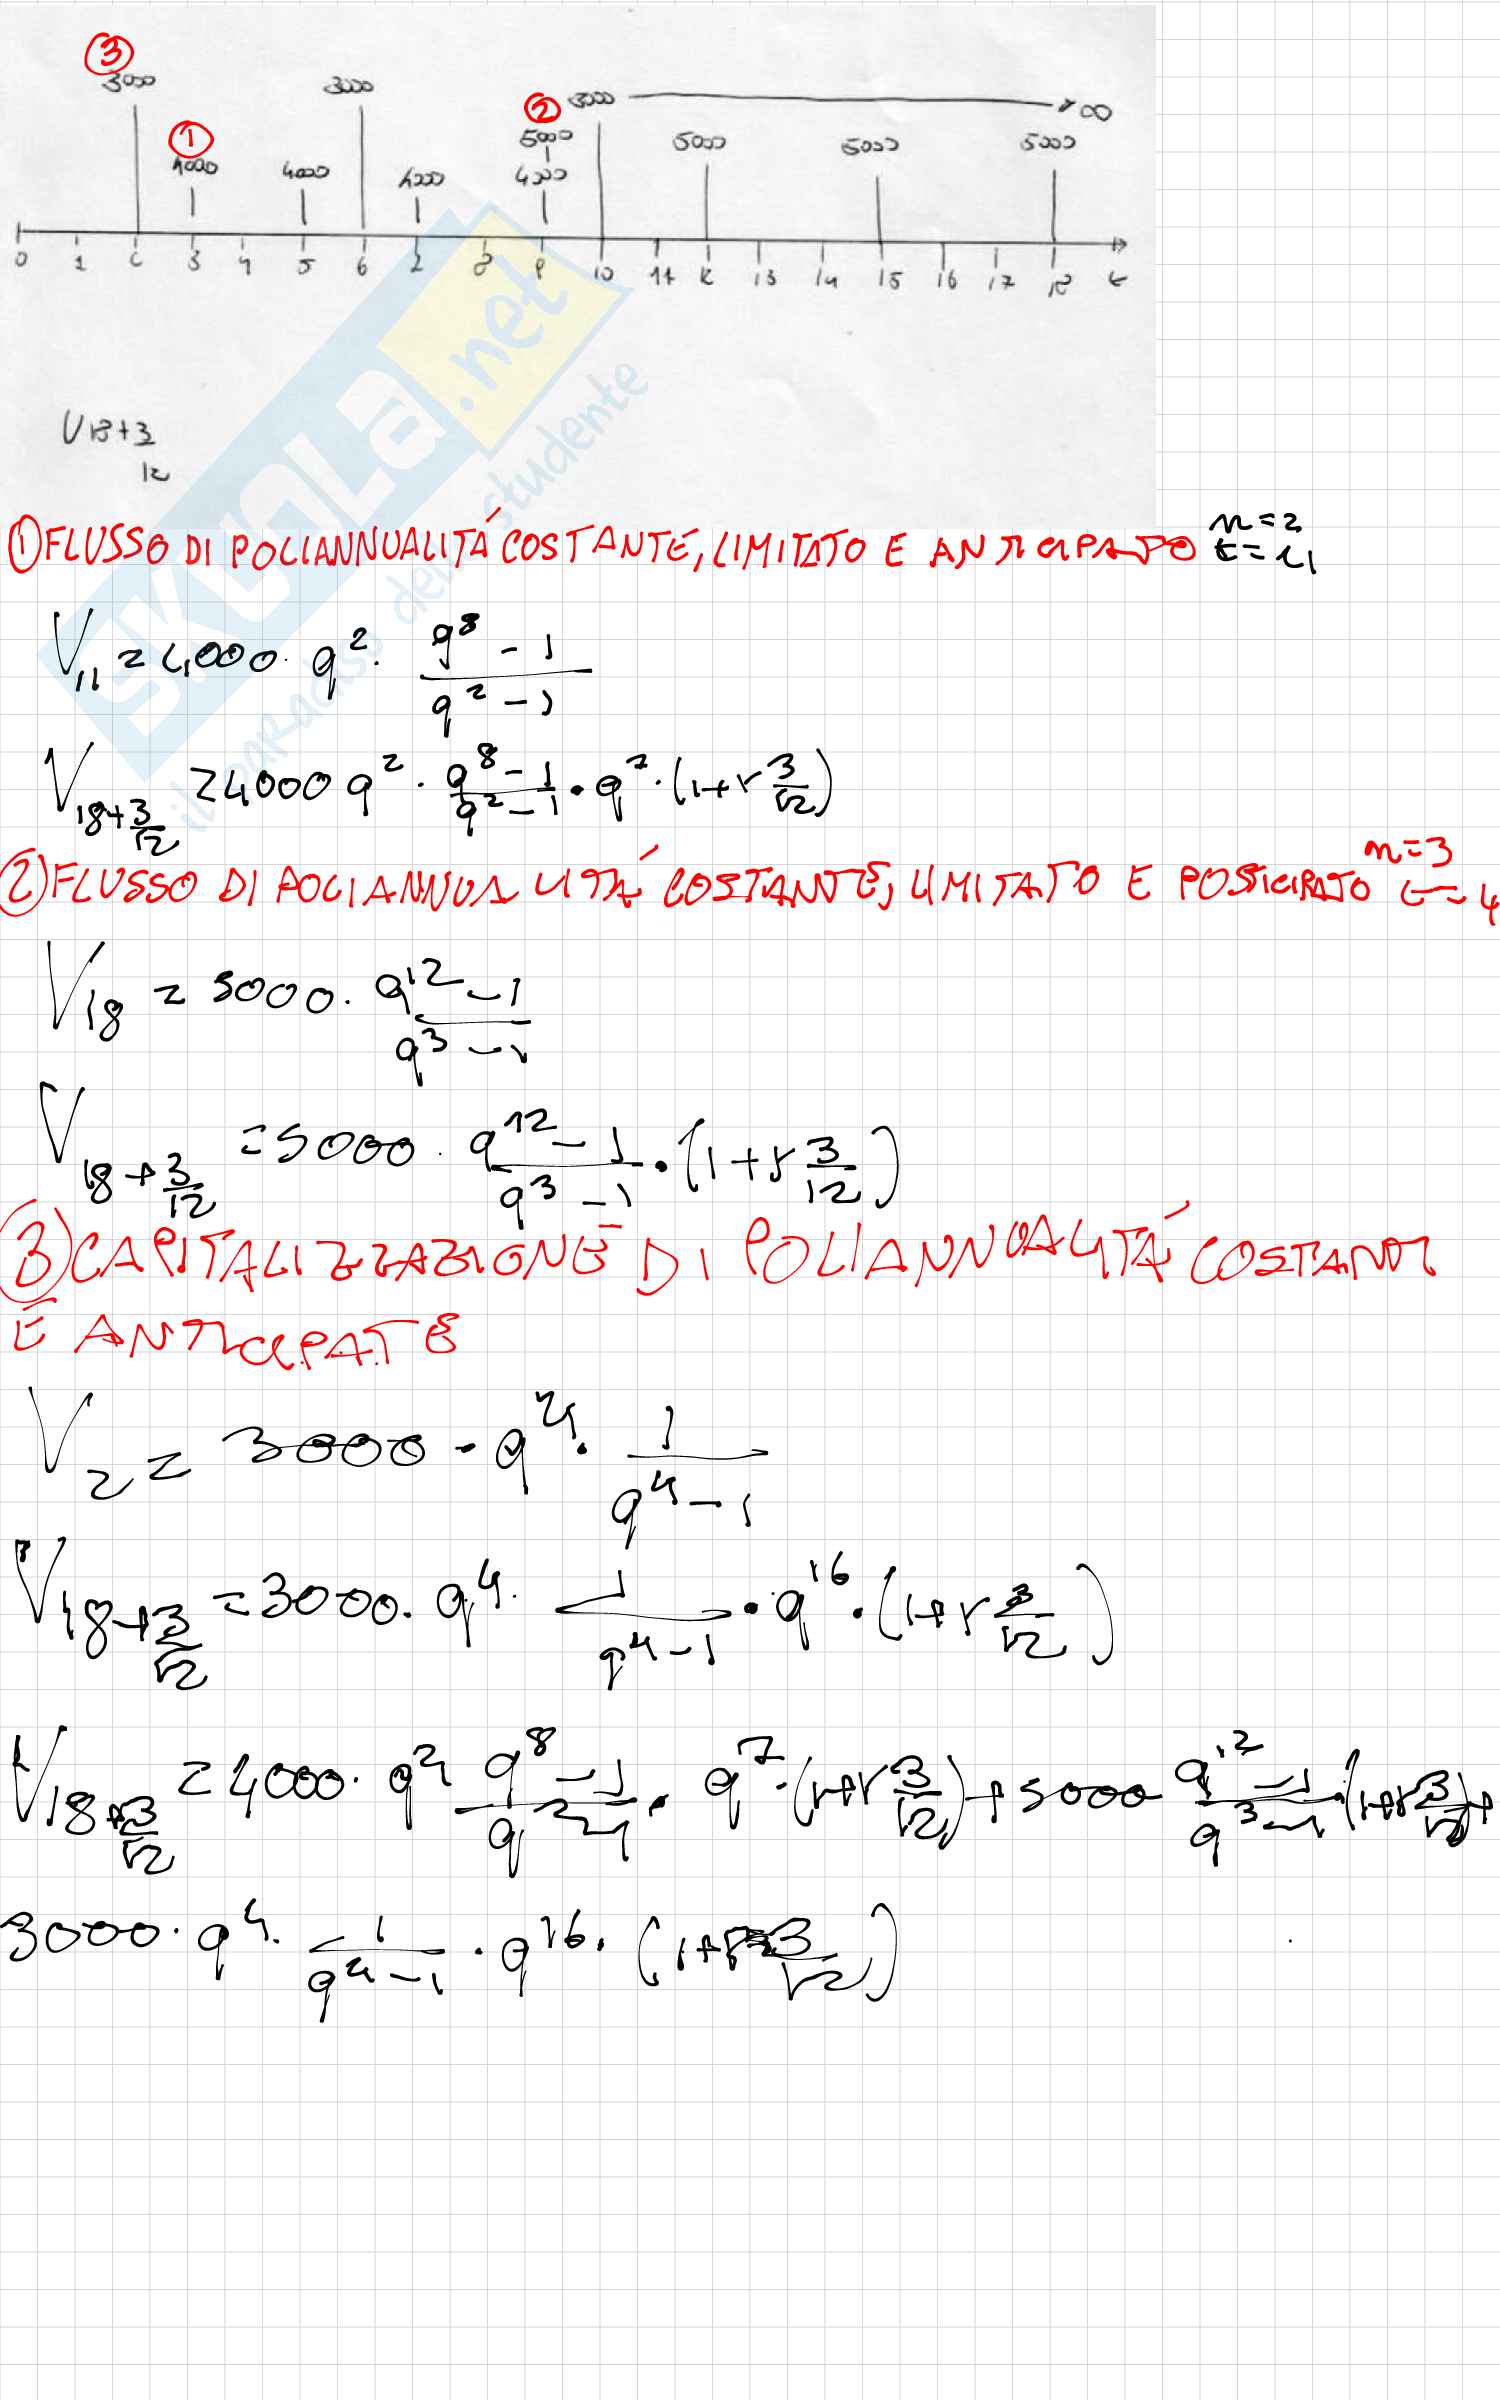 ③
3000 3000 ② 3000 +∞
① 5000 5000 5000 5000
4000 4000 4000 4000
0 1 2 3 4 5 6 7 8 9 10 11 12 13 14 15 16 17 18 t
V18+3/12
SKUOLA.net
il paradiso dello studente
① FLUSSO DI POLIANNUALITÁ COSTANTE, LIMITATO E ANTICIPATO n=2 t=4
V11 = 4000 · q² · (q⁸ - 1)/(q² - 1)
V18+3/12 = 4000 q² · (q⁸ - 1)/(q² - 1) · q⁷ · (1+r 3/12)
② FLUSSO DI POLIANNUALITÁ COSTANTE, LIMITATO E POSTICIPATO n=3 t=4
V18 = 5000 · (q¹² - 1)/(q³ - 1)
V18+3/12 = 5000 · (q¹² - 1)/(q³ - 1) · (1+r 3/12)
③ CAPITALIZZAZIONE DI POLIANNUALITÁ COSTANTI
E ANTICIPATE
V2 = 3000 · q⁴ · 1/(q⁴ - 1)
V18+3/12 = 3000 · q⁴ · 1/(q⁴ - 1) · q¹⁶ · (1+r 3/12)
V18+3/12 = 4000 · q² (q⁸ - 1)/(q² - 1) · q⁷ · (1+r 3/12) + 5000 (q¹² - 1)/(q³ - 1) · (1+r 3/12) +
3000 · q⁴ · 1/(q⁴ - 1) · q¹⁶ · (1+r 3/12)